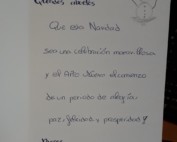 Queridos abuelos
Que esta Navidad
sea una celebración maravillosa
y el Año Nuevo el comienzo
de un periodo de alegría
paz, y prosperidad